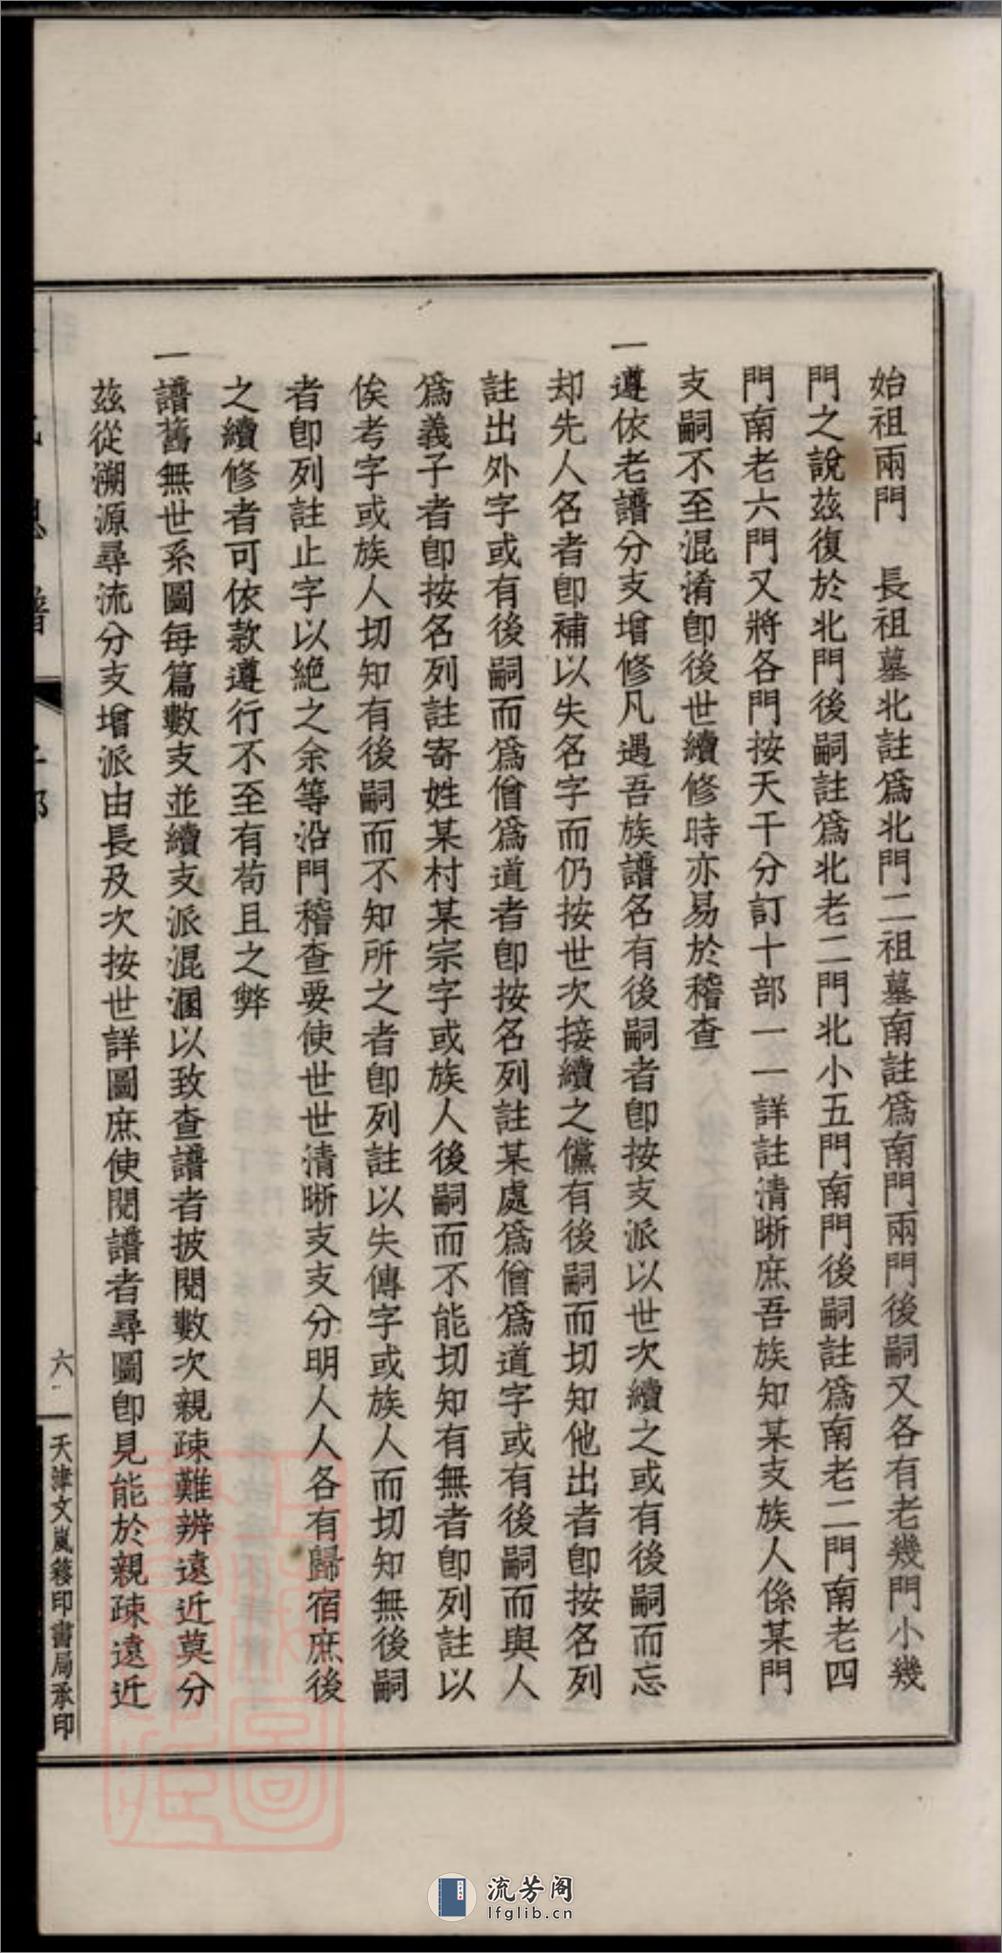 始祖兩門　長祖墓北註爲北門二祖墓南註爲南門兩門後嗣又各有老幾門小幾
門之說茲復於北門後嗣註爲北老二門北小五門南門後嗣註爲南老二門南老四
門南老六門又將各門按天干分訂十部一一詳註清晰庶吾族知某支族人係某門
支嗣不至混淆卽後世續修時亦易於稽查
一遵依老譜分支增修凡遇吾族譜名有後嗣者卽按支派以世次續之或有後嗣而忘
却先人名者卽補以失名字而仍按世次接續之儻有後嗣而切知他出者卽按名列
註出外字或有後嗣而爲僧爲道者卽按名列註某處爲僧爲道字或有後嗣而與人
爲義子者卽按名列註寄姓某村某宗字或族人後嗣而不能切知有無者卽列註以
俟考字或族人切知有後嗣而不知所之者卽列註以失傳字或族人而切知無後嗣
者卽列註止字以絕之余等沿門稽查要使世世清晰支支分明人人各有歸宿庶後
之續修者可依款遵行不至有苟且之弊
一譜舊無世系圖每篇數支並續支派混溷以致查譜者披閱數次親疎難辨遠近莫分
茲從溯源尋流分支增派由長及次按世詳圖庶使閱譜者尋圖卽見能於親疎遠近
譜
六
天津文嵐簃印書局承印
流芳阁
lfglib.cn